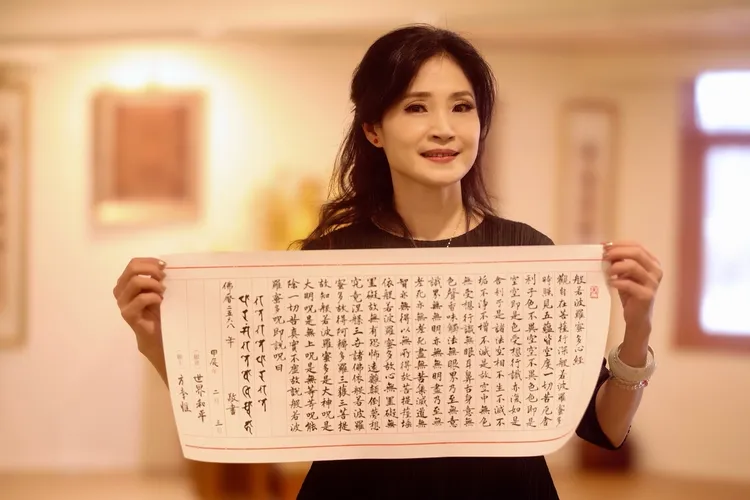 般若波羅蜜多心經
觀自在菩薩行深般若波羅蜜多
時照見五蘊皆空度一切苦厄舍
利子色不異空空不異色色即是
空空即是色受想行識亦復如是
舍利子是諸法空相不生不滅不
垢不淨不增不減是故空中無色
無受想行識無眼耳鼻舌身意無
色聲香味觸法無眼界乃至無意
識界無無明亦無無明盡乃至無
老死亦無老死盡無苦集滅道無
智亦無得以無所得故菩提薩埵
依般若波羅蜜多故心無罣礙無
罣礙故無有恐怖遠離顛倒夢想
究竟涅槃三世諸佛依般若波羅
蜜多故得阿耨多羅三藐三菩提
故知般若波羅蜜多是大神呪是
大明呪是無上呪是無等等呪能
除一切苦真實不虛故說般若波
羅蜜多呪即說呪曰
佛曆二五六八 年 敬書
甲辰 二 三
世界和平